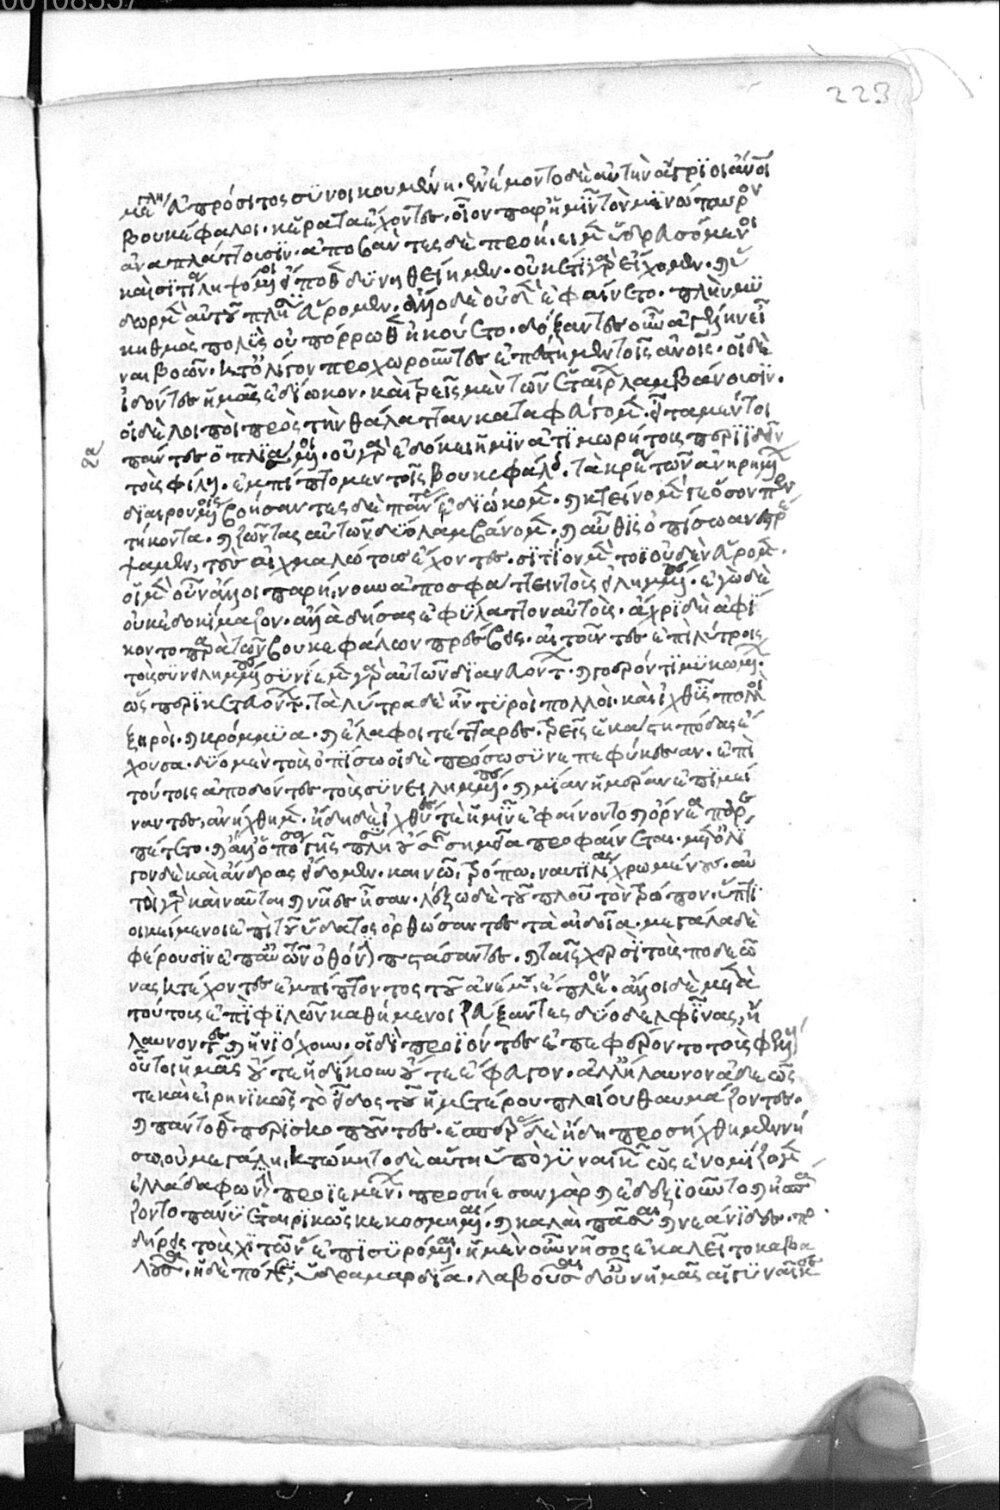 μεγάλη εὐπρόσιτος συνοικουμένη· ἐνέμοντο δὲ αὐτὴν ἄγριοι ἄνοι
βουκέφαλοι· κέρατα ἔχοντες· οἷον παρ' ἡμῖν τὸν μινώταυρον
ἀναπλάττουσιν· ἀποβάντες δὲ προήειμεν ὑδρευσόμενοι
καὶ σιτία ληψόμενοι εἴποθεν δυνηθείημεν· οὐκέτι γὰρ εἴχομεν· καὶ ὕ
δωρ μὲν αὐτοῦ πλησίον εὕρομεν· ἄλλο δὲ οὐδὲν ἐφαίνετο· πλὴν μυ
κηθμὸς πολὺς οὐ πόρρωθεν ἠκούετο· δόξαντες οὖν ἀγέλην εἶ
ναι βοῶν· κατ' ὀλίγον προχωροῦντες ἐπέστημεν τοῖς ἀνοις· οἱ δὲ
ἰδόντες ἡμᾶς ἐδίωκον· καὶ τρεῖς μὲν τῶν ἑταίρων λαμβάνουσιν·
οἱ δὲ λοιποὶ πρὸς τὴν θάλατταν καταφεύγομεν· εἶτα μέντοι
πάντες ὁπλισάμενοι· οὐ γὰρ ἐδόκει ἡμῖν ἀτιμωρήτους περιιδεῖν
τοὺς φίλους· ἐμπίπτομεν τοῖς βουκεφάλοις· τὰ κρέα τῶν ἀνηρημένων
διαιρουμένοις βοήσαντες δὲ πάντες ἐδιώκομεν· καὶ κτείνομέν γε ὅσον πεν
τήκοντα· καὶ ζῶντας αὐτῶν δύο λαμβάνομεν· καὶ αὖθις ὀπίσω ἀνεστρέ
ψαμεν, τοὺς αἰχμαλώτους ἔχοντες· σιτίον μέντοι οὐδὲν εὕρομεν·
οἱ μὲν οὖν ἄλλοι παρήνουν ἀποσφάττειν τοὺς εἰλημμένους· ἐγὼ δὲ
οὐκ ἐδοκίμαζον· ἀλλὰ δήσας ἐφύλαττον αὐτούς· ἄχρι δὴ ἀφί
κοντο παρὰ τῶν βουκεφάλων πρέσβεις· αἰτοῦντες ἐπὶ λύτροις
τοὺς συνειλημμένους συνίεμεν γὰρ αὐτῶν διανευόντων· καὶ γοερόν τι μυκωμένων·
ὥσπερ ἱκετευόντων· τὰ λύτρα δὲ ἦν τυροὶ πολλοὶ· καὶ ἰχθῦς πολλοὶ
ξηροὶ· καὶ κρόμμυα· καὶ ἔλαφοι τέτταρες· τρεῖς ἑκάστη πόδας ἔ
χουσα· δύο μὲν τοὺς ὀπίσω οἱ δὲ πρόσω συνεπεφύκεσαν· ἐπὶ
τούτοις ἀποδόντες τοὺς συνειλημμένους· καὶ μίαν ἡμέραν ἐπιμεί
ναντες, ἀνήχθημεν· ἤδη δὲ ἰχθύες τε ἡμῖν ἐφαίνοντο καὶ ὄρνεα παρε
πέτετο· καὶ ἄλλ' ὁπόσα γῆς πλησίον οὔσης σημεῖα προφαίνεται· μετ' ὀλί
γον δὲ καὶ ἄνδρας εἴδομεν· καινῷ τρόπῳ, ναυτιλίας χρωμένους· αὐ
τοὶ γὰρ καὶ ναῦται καὶ νῆες ἦσαν· λέξω δὲ τοῦ πλοῦ τὸν τρόπον· ὕπτι
οι κείμενοι ἐπὶ τοῦ ὕδατος ὀρθώσαντες τὰ αἰδοῖα· μεγάλα δὲ
φέρουσιν ἐπ' αὐτῶν ὀθόνην πετάσαντες· καὶ ταῖς χερσὶ τοὺς ποδεῶ
νας κατέχοντες ἐμπίπτοντος τοῦ ἀνέμου, ἔπλεον· ἄλλοι δὲ μετὰ
τούτους ἐπὶ φελλῶν καθήμενοι ζεύξαντες δύο δελφῖνας, ἤ
λαυνον τε καὶ ἡνιόχουν· οἱ δὲ προϊόντες ἐπεφέροντο τοὺς φελλούς
οὗτοι ἡμᾶς οὔτε ἠδίκουν οὔτε ἔφευγον· ἀλλ' ἤλαυνον ἀδεῶς
τε καὶ εἰρηνικῶς τὸ εἶδος τοῦ ἡμετέρου πλοίου θαυμάζοντες·
καὶ πάντοθεν περισκοποῦντες· ἑσπέρας δὲ ἤδη προσήχθημεν νή
σῳ, οὐ μεγάλη· κατῴκητο δὲ αὕτη ὑπὸ γυναικῶν ὡς ἐνομίζομεν
ἑλλάδα φωνὴν προϊεμένων· προσήεσαν γὰρ καὶ ἐδεξιοῦντο καὶ ἠσπά
ζοντο πάνυ ἑταιρικῶς κεκοσμημέναι· καὶ καλαὶ πᾶσαι καὶ νεάνιδες· πο
δήρεις τοὺς χιτῶνας ἐπισυρόμεναι· ἡ μὲν οὖν νῆσος ἐκαλεῖτο καβα
λοῦσα· ἡ δὲ πόλις, ὑδραμαρδία· λαβοῦσαι δ' οὖν ἡμᾶς αἱ γυναῖκες